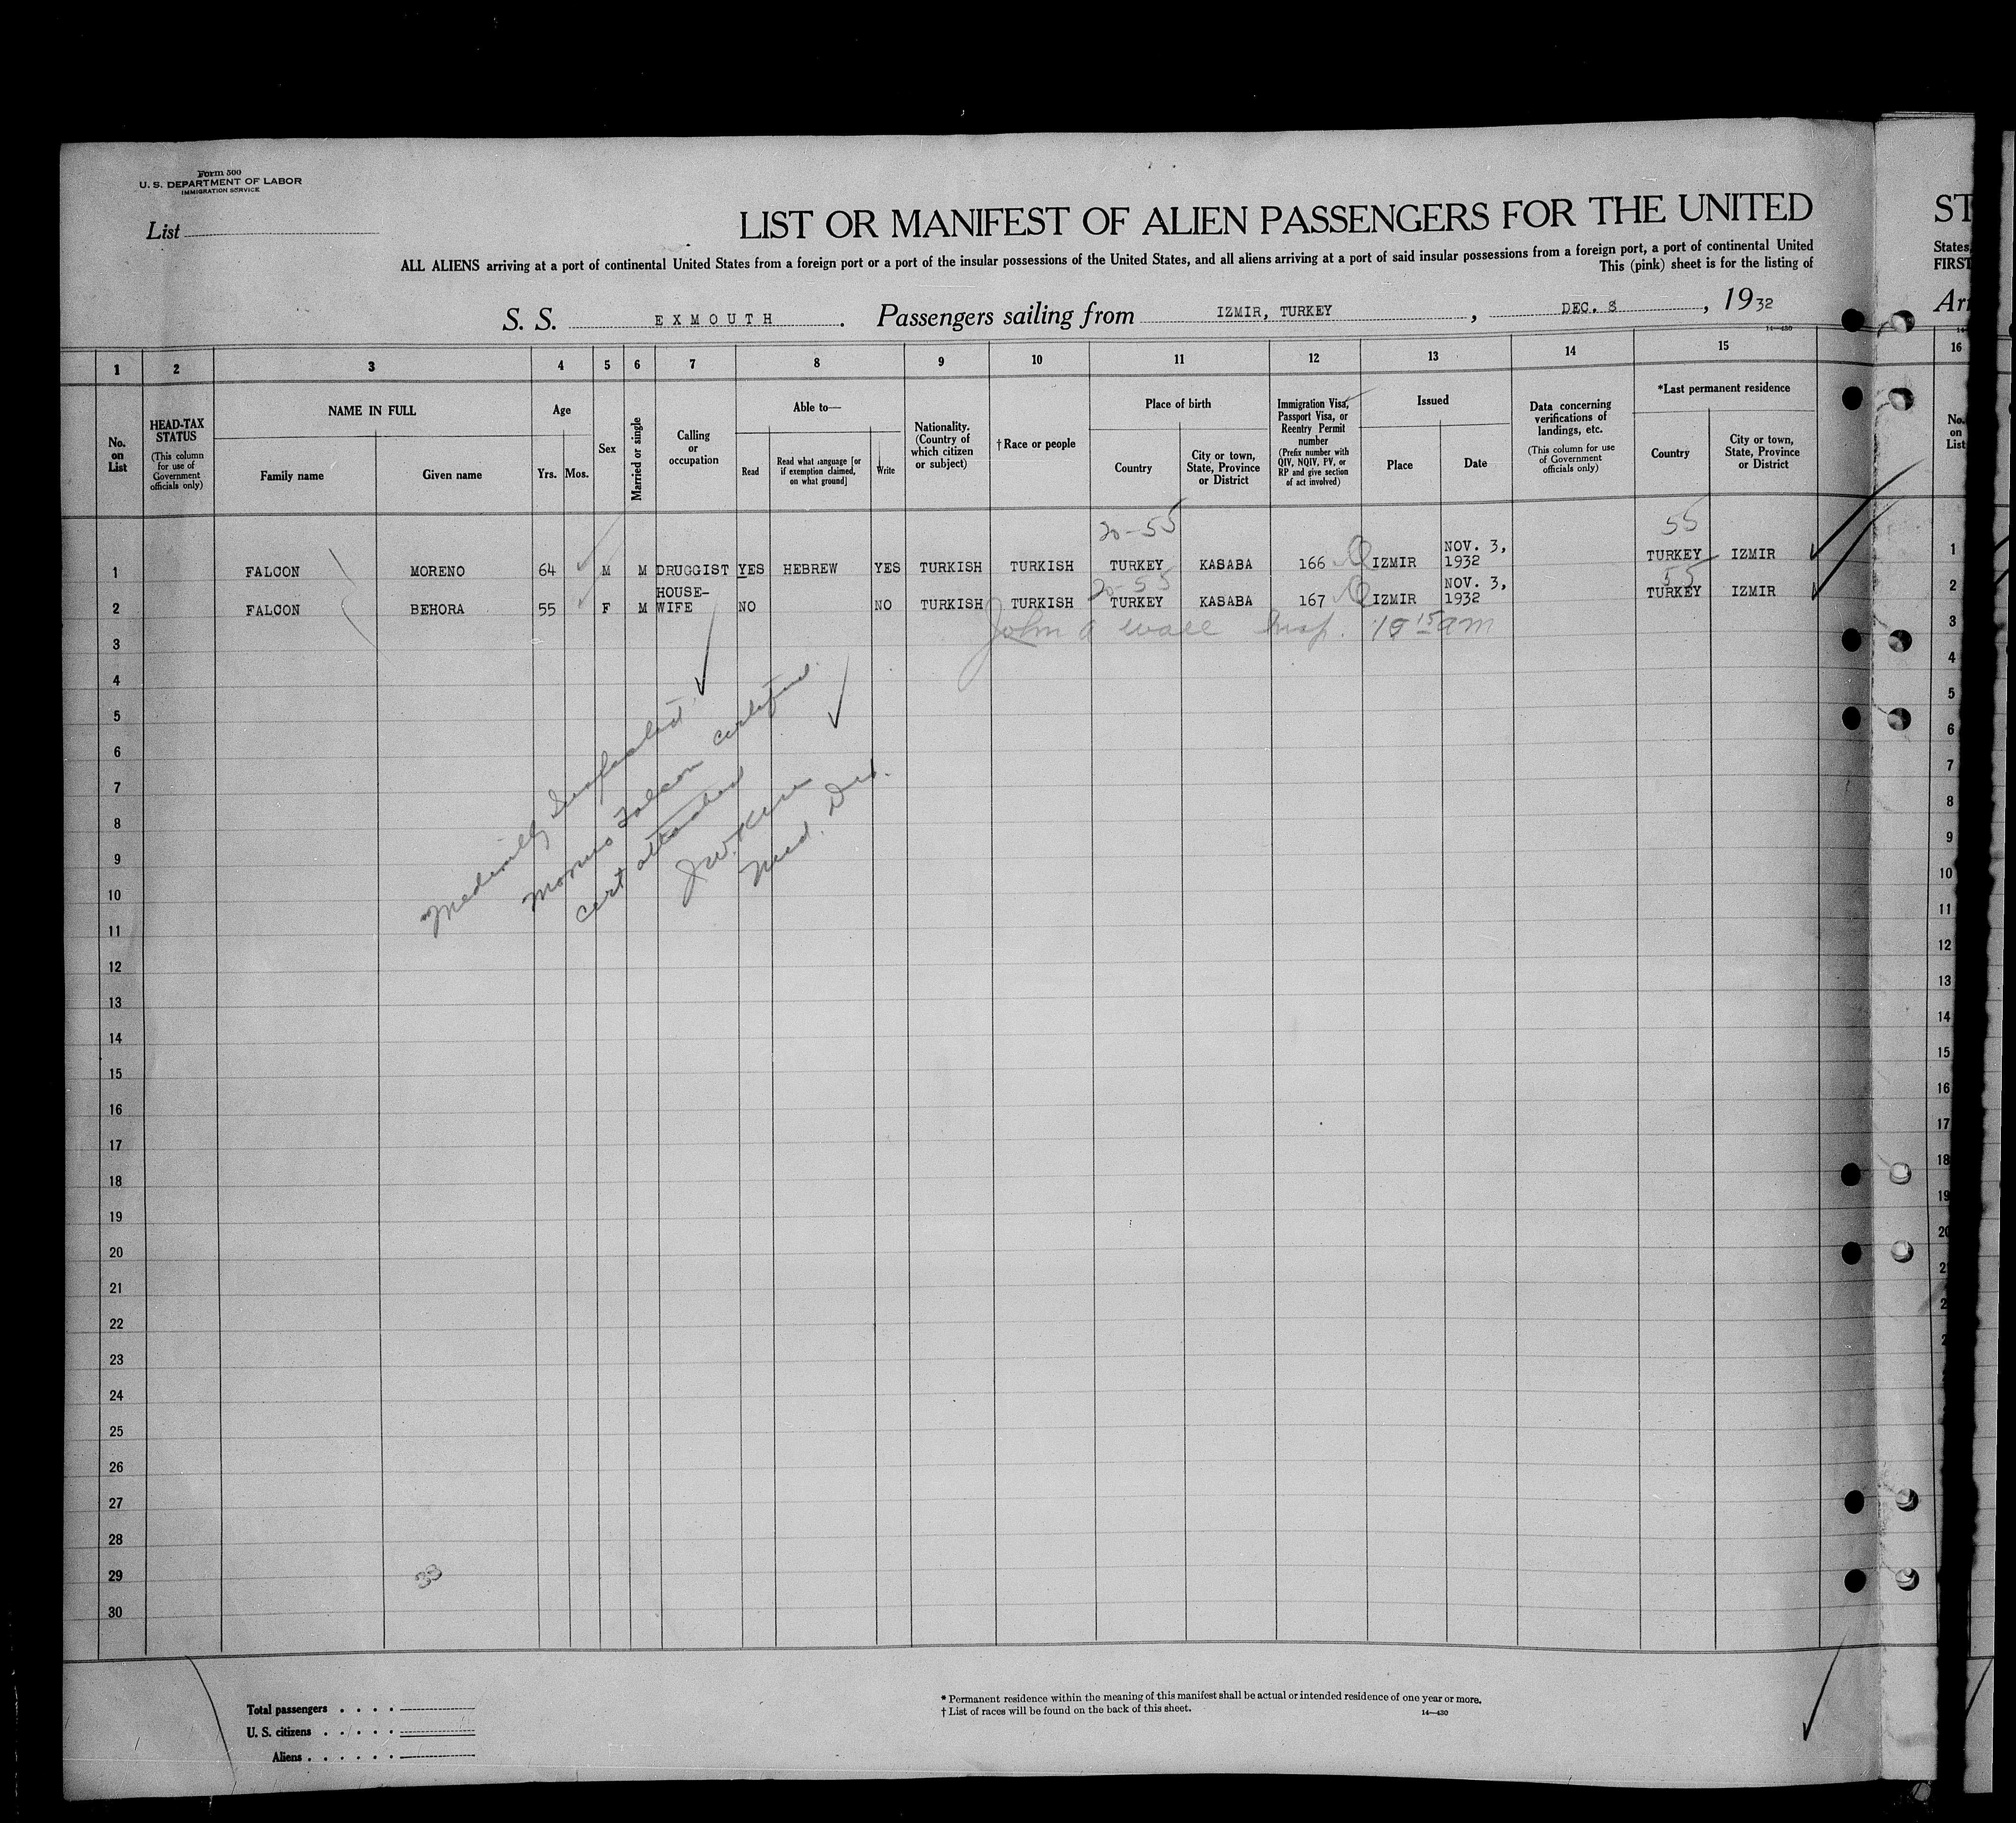 Form 500
U. S. DEPARTMENT OF LABOR
IMMIGRATION SERVICE
List
LIST OR MANIFEST OF ALIEN PASSENGERS FOR THE UNITED
ST
ALL ALIENS arriving at a port of continental United States from a foreign port or a port of the insular possessions of the United States, and all aliens arriving at a port of said insular possessions from a foreign port, a port of continental United
States,
This (pink) sheet is for the listing of
FIRST
S. S. EXMOUTH. Passengers sailing from IZMIR, TURKEY, DEC. 8, 1932
14—430
1 2 3 4 5 6 7 8 9 10 11 12 13 14 15 16
No. on List
HEAD-TAX STATUS
(This column for use of Government officials only)
NAME IN FULL
Family name Given name
Age
Yrs. Mos.
Sex
Married or single
Calling or occupation
Able to—
Read
Read what language [or if exemption claimed, on what ground]
Write
Nationality. (Country of which citizen or subject)
†Race or people
Place of birth
Country
City or town, State, Province or District
Immigration Visa, Passport Visa, or Reentry Permit number
(Prefix number with QIV, NQIV, PV, or RP and give section of act involved)
Issued
Place Date
Data concerning verifications of landings, etc.
(This column for use of Government officials only)
*Last permanent residence
Country
City or town, State, Province or District
No. on List
20-55 55
1 FALCON MORENO 64 M M DRUGGIST YES HEBREW YES TURKISH TURKISH TURKEY KASABA 166 Q IZMIR NOV. 3, 1932 TURKEY IZMIR 1
20-55 55
2 FALCON BEHORA 55 F M HOUSE-WIFE NO NO TURKISH TURKISH TURKEY KASABA 167 Q IZMIR NOV. 3, 1932 TURKEY IZMIR 2
John a Insp. 10 15 am
3 3
4 4
5 5
6 6
7 7
8 8
9 9
10 10
11 11
12 12
13 13
14 14
15 15
16 16
17 17
18 18
19 19
20
21
22
23
24
25
26
27
28
29
30
Medically Inspected
Moreno Falcon certified
cert attached
Med.
33
Total passengers
U. S. citizens
Aliens
* Permanent residence within the meaning of this manifest shall be actual or intended residence of one year or more.
† List of races will be found on the back of this sheet.
14—430